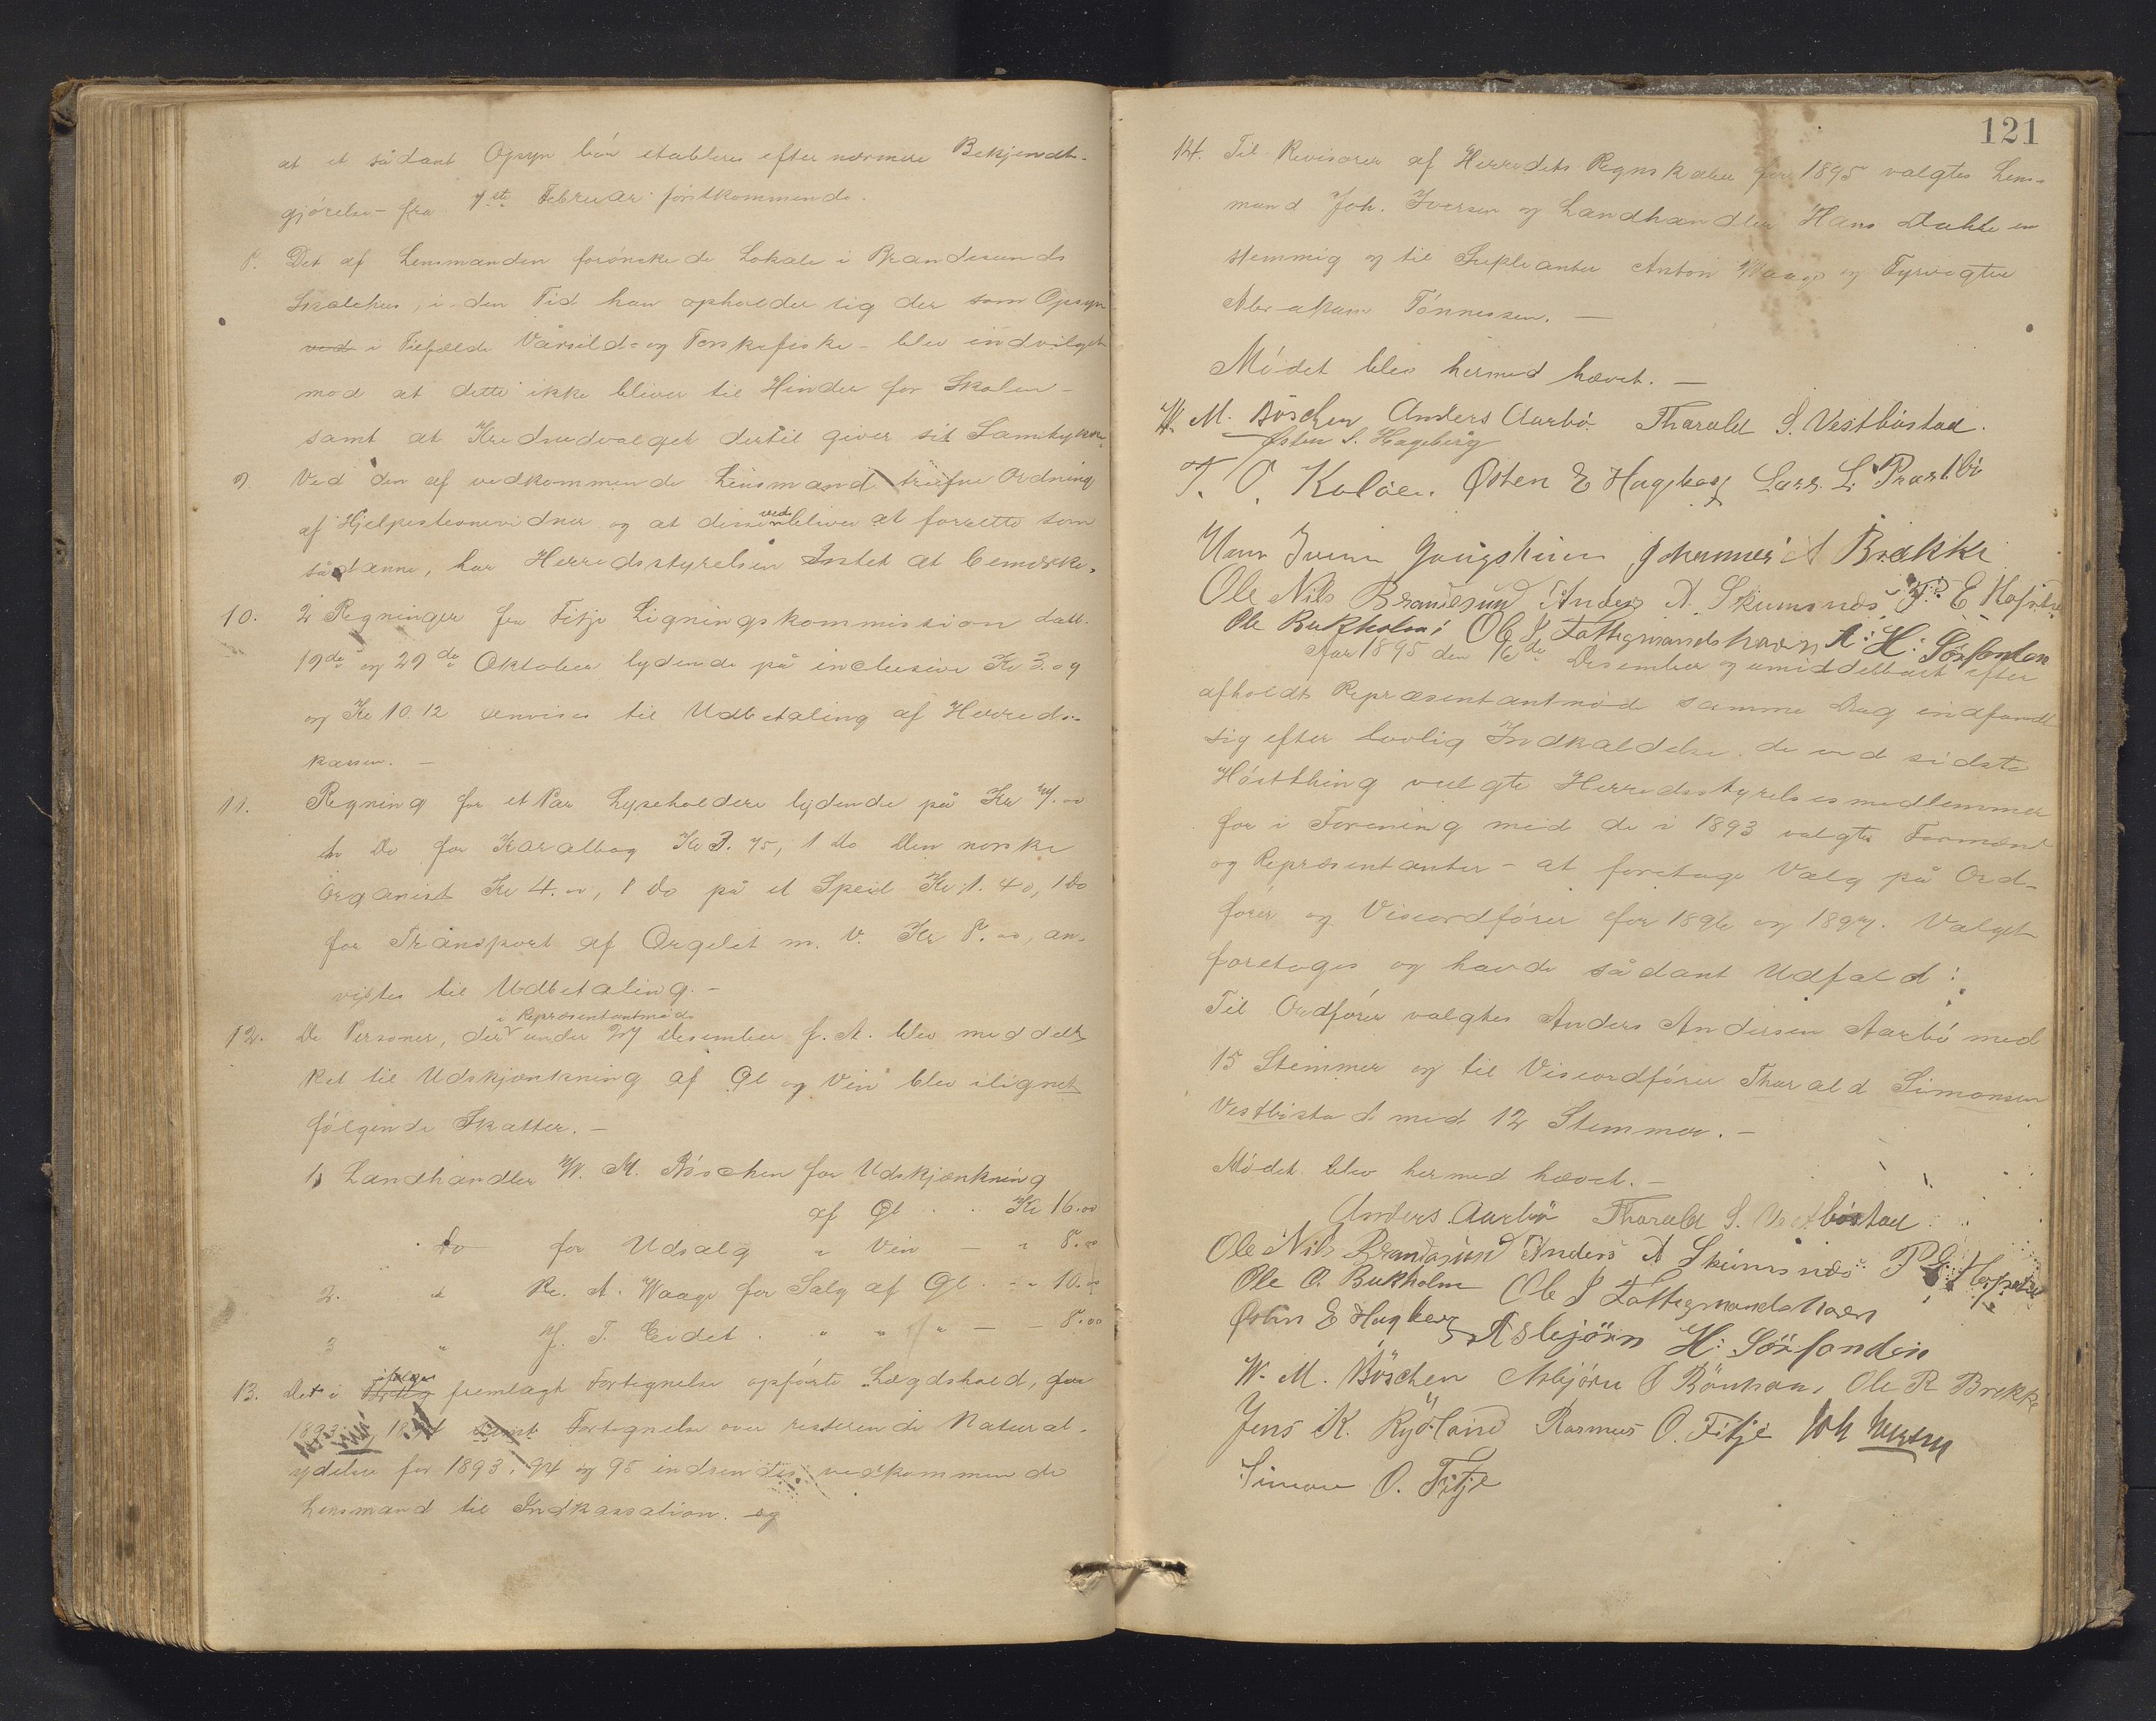 at et sådant Opsyn bör etableres efter nærmere Bekjendt-
gjörelse fra 1ste Februar förstkommende.
8. Det af Lensmanden forönskede Lokale i Brandesunds
Skolehus, i den Tid han opholder sig der som Opsyn
ved i Tilfælde Vårsild- og Torskefiske - blev indvilget
mod at dette ikke bliver til Hinder for Skolen -
samt at Kredsudvalget dertil giver sit Samtykke.
9. Ved den af vedkommende Lensmand trufne Ordning
af Hjelpestevnevidner og at disse vedbliver at forrette som
sådanne, har Herredsstyrelsen Intet at bemærke.
10. 2 Regninger fra Fitje Ligningskommission datt.
19de og 29de Oktober lydende på inclusive Kr 3.09
og Kr 10.12 anvises til Udbetaling af Herreds-
kassen. -
11. Regning for et Par Lyseholdere lydende på Kr 7.00
en Do for Koralbog Kr 3.75, 1 Do Den norske
Organist Kr 4.00, 1 Do på et Speil Kr 1.40, 1 Do
for Transport af Orgelet m. v. Kr 8.00, an-
vistes til Udbetaling. -
i Repræsentantmöde
12. De Personer, der under 27 Desember f. A. blev meddelt
Ret til Udskjænkning af Øl og Vin blev ilignet
fölgende Skatter. -
1, Landhandler W. M. Böschen for Udskjænkning
af Øl . . Kr 16.00
do for Udsalg " Vin - " 8.00
2. " R. A. Waage for Salg af Øl . - " 10.00
3 " J. T. Eidet . " " " - - 8.00
13. Det i følge fremlagt Fortegnelse opförte Lægdshold, for
1893 1894 samt Fortegnelse over resterende Natural-
ydelser for 1893, 94 og 95 indsendes vedkommende
Lensmand til Indkassation. og
121
14. Til Revisorer af Herredets Regnskaber for 1895 valgtes Lens-
mand Joh. Iversen og Landhandler Hans Dahle en
stemmig og til Supleanter Anton Waage og Fyrvogter
Abraham Tönnessen. -
Mödet blev hermed hævet. -
W. M. Böschen Anders Aarbö. Tharald S. Vestböstad.
Østen S. Hageberg
T. O. Kolöen. Østen E Hageberg Lars. L. Præstbö
Johannes A Brække
Ole Nils Brandesund Anders A. Skumsnes. P. E Hofsetre
Ole Bukholm Ole J Fattigmandshavn A: H: Sörfonden
Aar 1895 den 16de Desember og umiddelbart efter
afholdt Repræsentantmöde samme Dag indfandt
sig efter lovlig Indkaldelse de ved sidste
Höstthing valgte Herredsstyrelsesmedlemmer
for i Forening med de i 1893 valgte Formænd
og Repræsentanter - at foretage Valg på Ord-
förer og Viseordförer for 1896 og 1897. Valget
foretoges og havde sådant Udfald:
Til Ordförer valgtes Anders Andersen Aarbö med
15 Stemmer og til Viseordförer Tharald Simonsen
Vestböstad med 12 Stemmer. -
Mödet blev hermed hævet. -
Anders Aarbö Tharald S. Vestböstad
Ole Nils Brandasund Anders A Skumsnes P. E. Hofsetre
Ole O. Bukholm Ole J Fattigmandshavn
Østen E Hageberg Asbjörn H: Sörfonden
W. M. Böschen Asbjörn O Rönhovn, Ole R Brekke
Jens K. Rydland Rasmus O. Fitje Joh Iversen
Simon O. Fitje